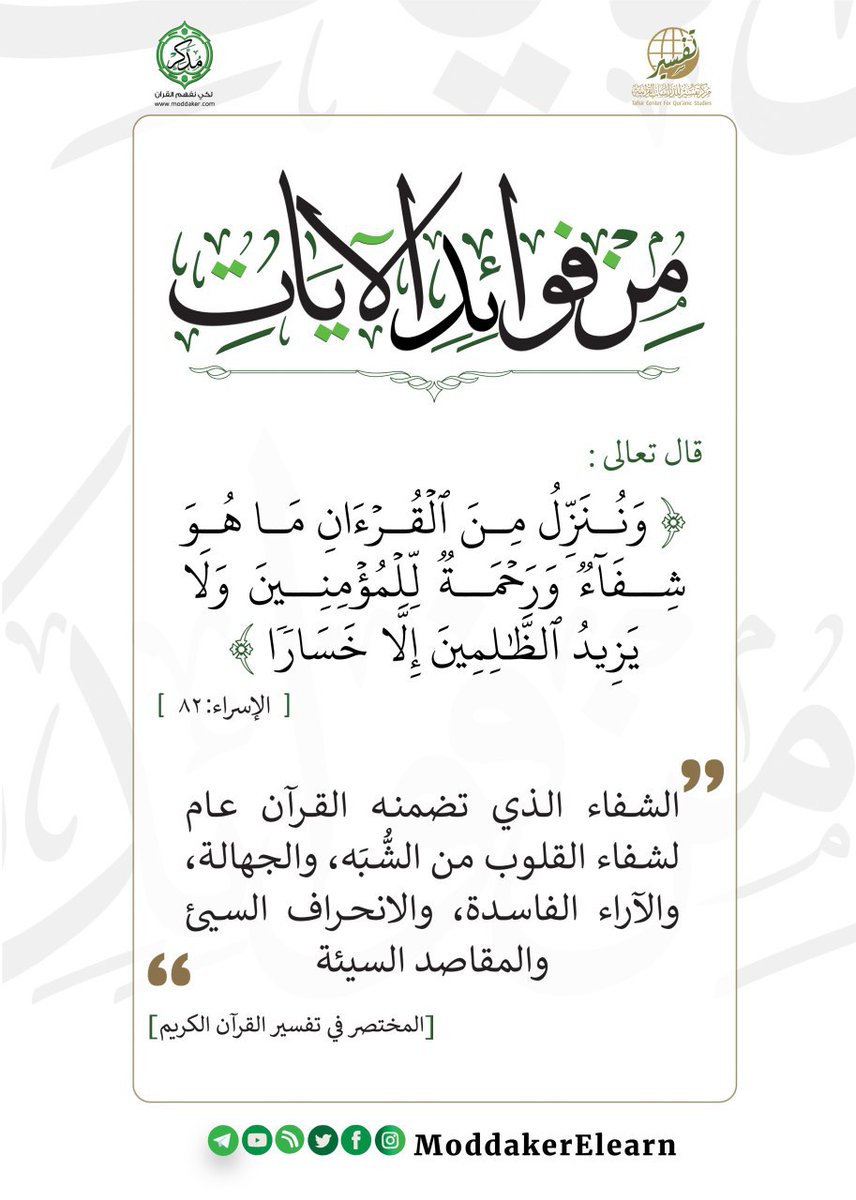 مدكر
لكي نفهم القرآن
www.moddaker.com
تفسير
مركز تفسير للدراسات القرآنية
Tafsir Center For Qur'anic Studies
مِن فوائِدِ الآيَاتِ
قال تعالى :
﴿ وَنُنَزِّلُ مِنَ ٱلۡقُرۡءَانِ مَا هُوَ
شِفَآءٞ وَرَحۡمَةٞ لِّلۡمُؤۡمِنِينَ وَلَا
يَزِيدُ ٱلظَّٰلِمِينَ إِلَّا خَسَارٗا ﴾
[ الإسراء: ٨٢ ]
الشفاء الذي تضمنه القرآن عام
لشفاء القلوب من الشُّبَه، والجهالة،
والآراء الفاسدة، والانحراف السيئ
والمقاصد السيئة
[المختصر في تفسير القرآن الكريم]
ModdakerElearn